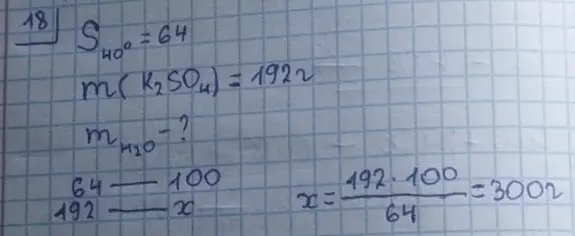 18 S₄₀° = 64
m(K₂SO₄) = 192г
m H₂O - ?
64 — 100
192 — x
x = 192 · 100 / 64 = 300г